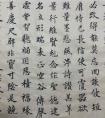 必改得能莫忘罔談彼短
靡恃己長信使可覆器欲
難量墨悲絲染詩讚羔羊
景行維賢剋念作聖德建
名立形端表正空谷傳聲
虛堂習聽禍因惡積福緣
善慶尺璧非寶寸陰是競